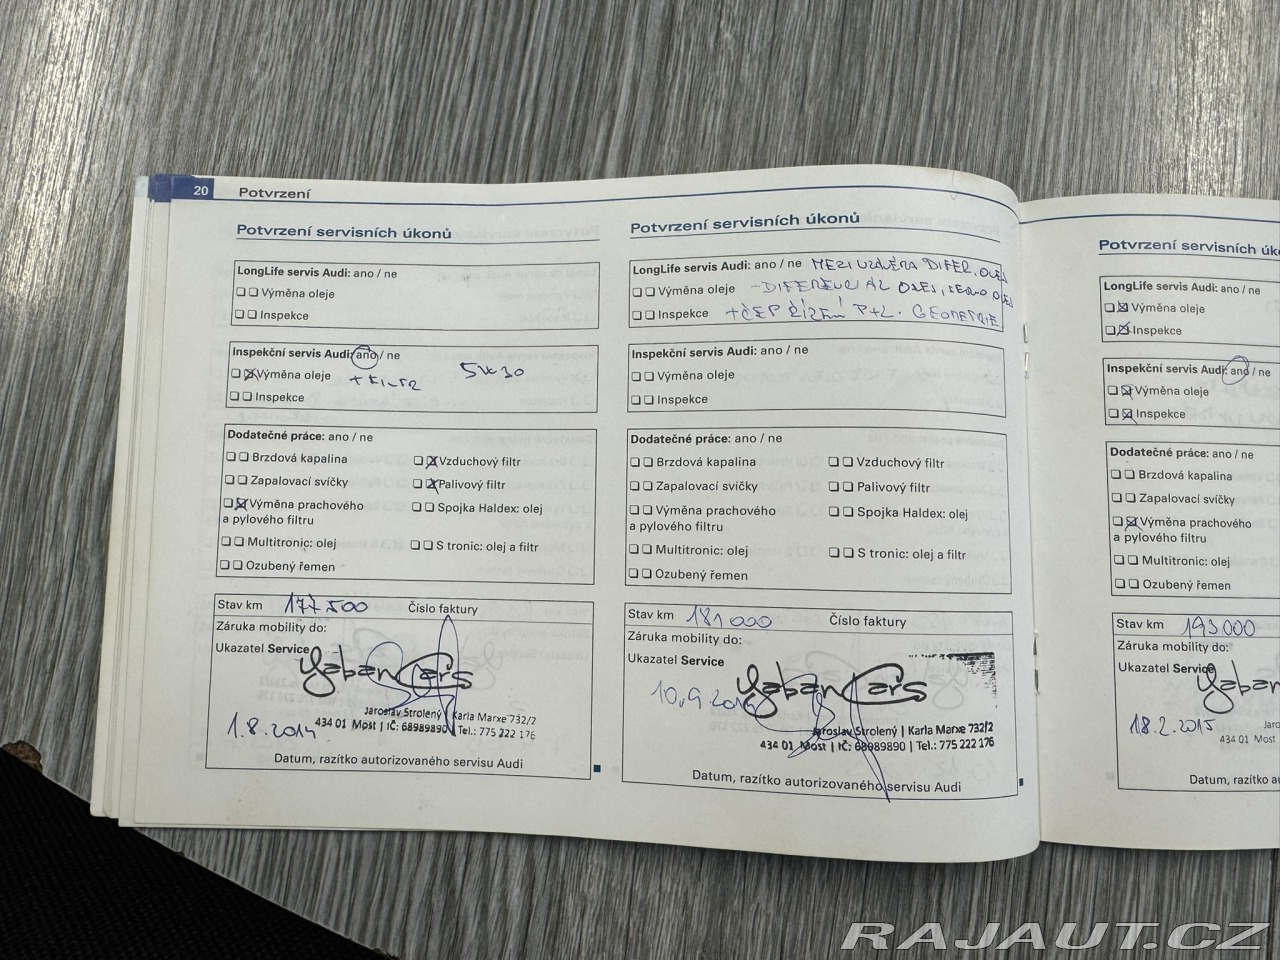 20 Potvrzení
Potvrzení servisních úkonů
LongLife servis Audi: ano / ne
Výměna oleje
Inspekce
Inspekční servis Audi: ano / ne
Výměna oleje + FILTR 5W30
Inspekce
Dodatečné práce: ano / ne
Brzdová kapalina Vzduchový filtr
Zapalovací svíčky Palivový filtr
Výměna prachového Spojka Haldex: olej
a pylového filtru
Multitronic: olej S tronic: olej a filtr
Ozubený řemen
Stav km 177 500 Číslo faktury
Záruka mobility do:
Ukazatel Service
YabanCars
Jaroslav Strolený | Karla Marxe 732/2
434 01 Most | IČ: 68989890 | Tel.: 775 222 176
1.8.2014
Datum, razítko autorizovaného servisu Audi
Potvrzení servisních úkonů
LongLife servis Audi: ano / ne DIFER. OLEJ
Výměna oleje - OLEJ, SERVO OLEJ
Inspekce + ČEP ŘÍZENÍ P+L. GEOMETRIE
Inspekční servis Audi: ano / ne
Výměna oleje
Inspekce
Dodatečné práce: ano / ne
Brzdová kapalina Vzduchový filtr
Zapalovací svíčky Palivový filtr
Výměna prachového Spojka Haldex: olej
a pylového filtru
Multitronic: olej S tronic: olej a filtr
Ozubený řemen
Stav km 181 000 Číslo faktury
Záruka mobility do:
Ukazatel Service
YabanCars
10.9.2014
Jaroslav Strolený | Karla Marxe 732/2
434 01 Most | IČ: 68989890 | Tel.: 775 222 176
Datum, razítko autorizovaného servisu Audi
Potvrzení servisních úko
LongLife servis Audi: ano / ne
Výměna oleje
Inspekce
Inspekční servis Audi: ano / ne
Výměna oleje
Inspekce
Dodatečné práce: ano / ne
Brzdová kapalina
Zapalovací svíčky
Výměna prachového
a pylového filtru
Multitronic: olej
Ozubený řemen
Stav km 193 000
Záruka mobility do:
Ukazatel Service
Yaban
Jaroslav St
18.2.2015 434 01 Most
Datum, razítko au
RAJAUT.CZ